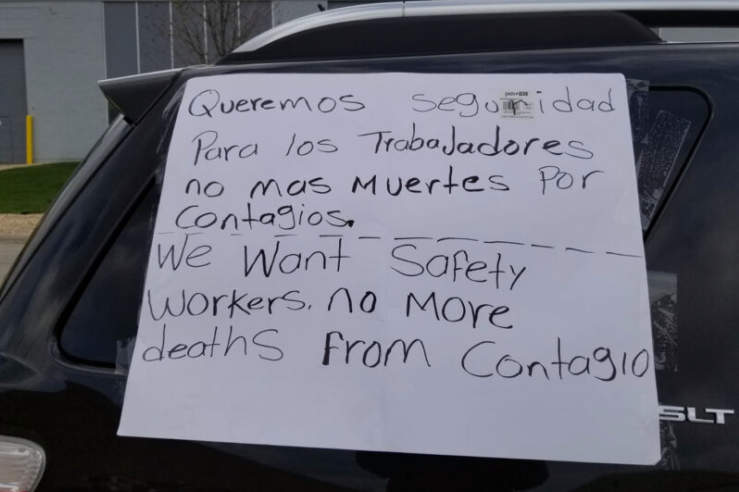 Queremos seguridad
Para los TrabaJadores
no mas Muertes Por
Contagios.
We Want Safety
Workers. no More
deaths From Contagio
SLT